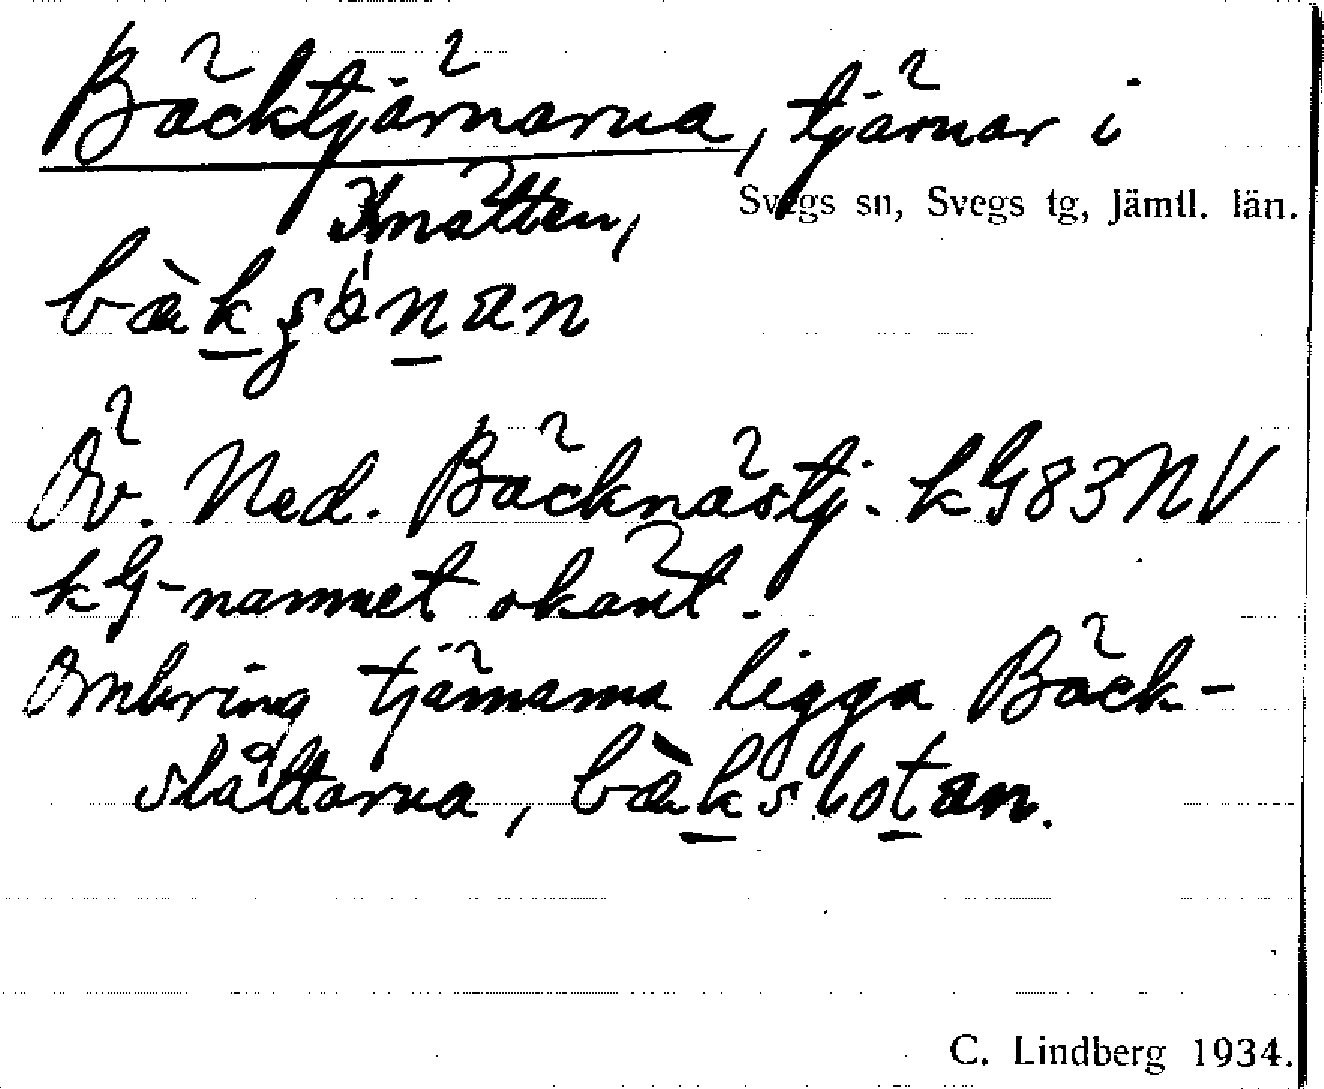 Bäcktjärnarna, tjärnar i
Knätten, Svegs sn, Svegs tg, Jämtl. län.
bæ̀kʂönan
Öv. Ned. Bäcknästj. kG83NV
kG-namnet okänt.
Omkring tjärnarna ligga Bäck-
slåttorna, bæ̀kslotan.
C. Lindberg 1934.